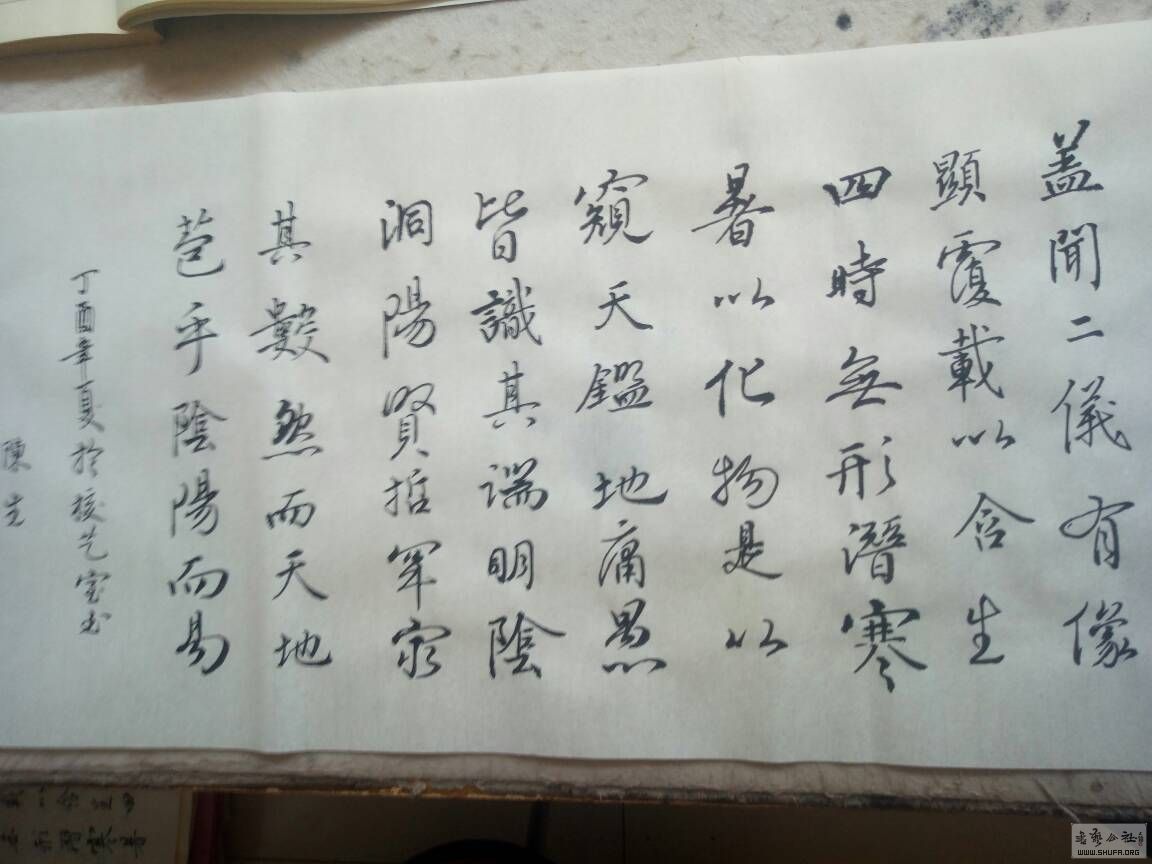 盖聞二儀有像
顯覆載以含生
四時無形潛寒
暑以化物是以
窺天鑑地庸愚
皆識其端明陰
洞陽賢哲罕窮
其數然而天地
苞乎陰陽而易
丁酉年夏於艺室书
陳生
书艺公社
WWW.SHUFA.ORG